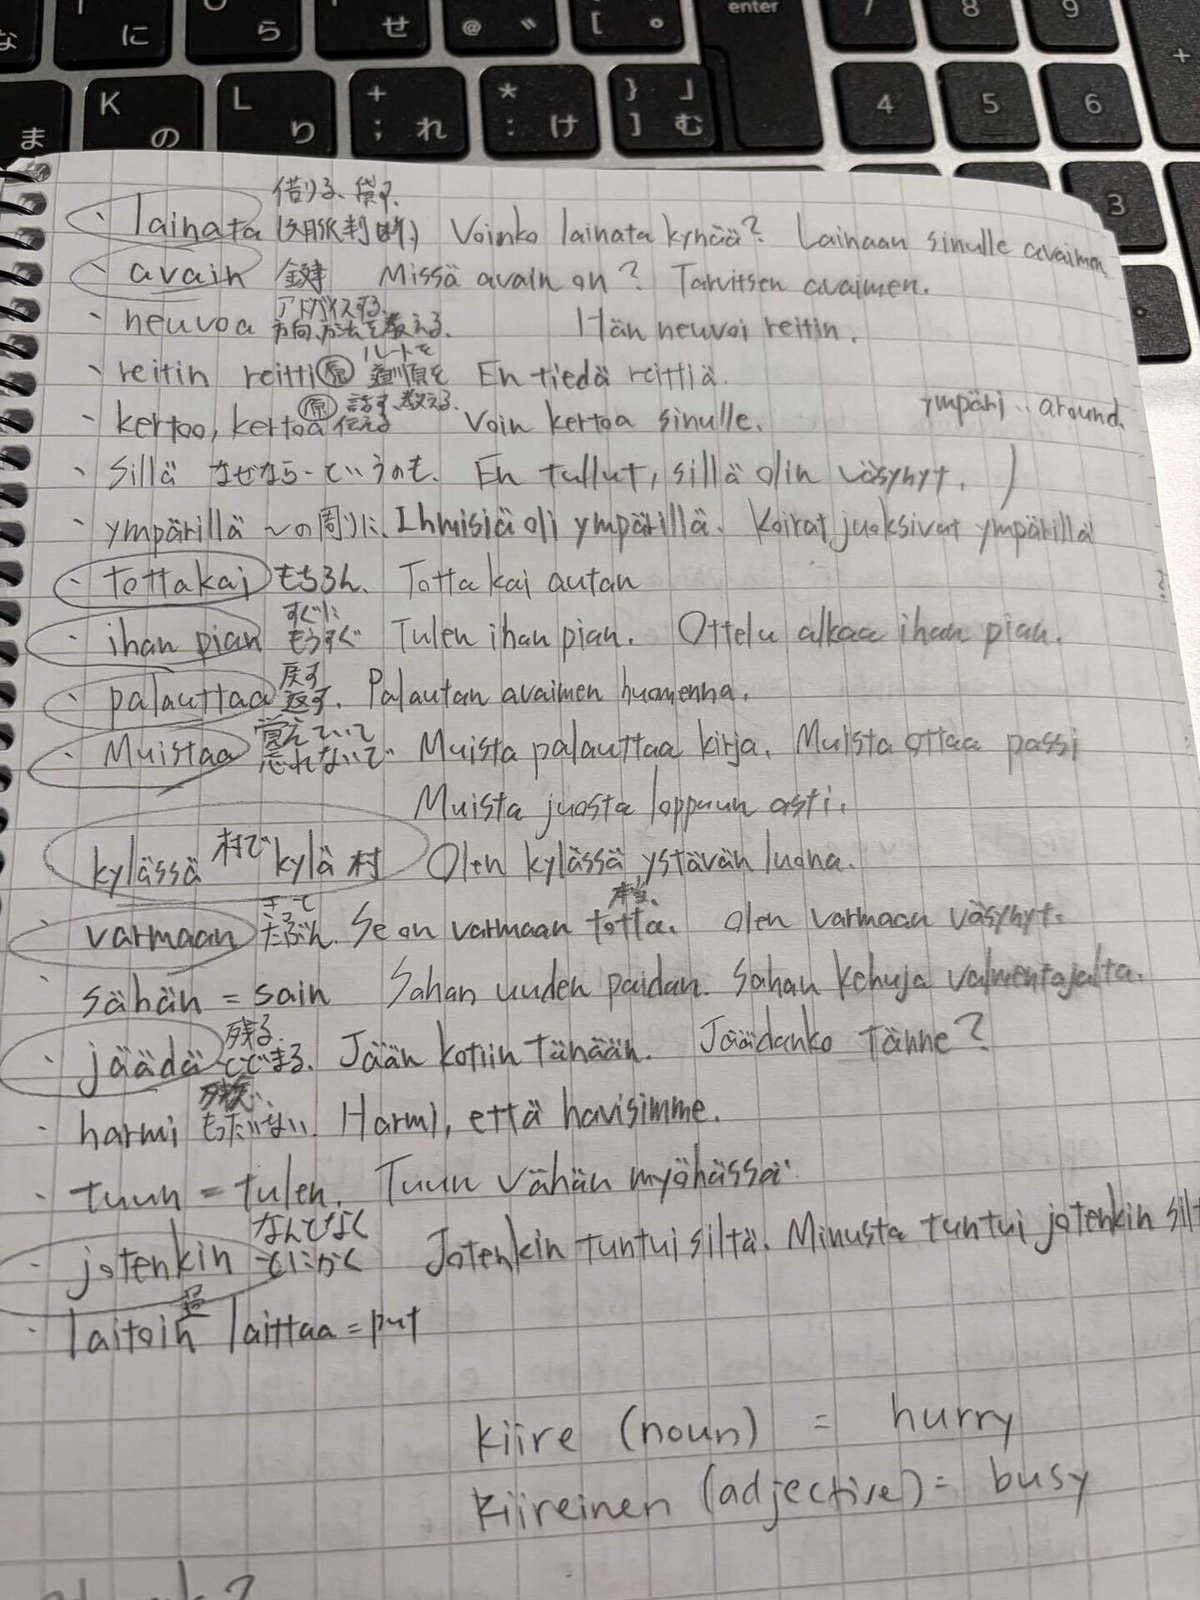 enter
に
ら
せ
@
[
7
8
9
+
ま
K
の
L
り
+
; れ
*
: け
} 」
] む
4
5
6
3
借りる、貸す.
・ lainata (文脈判断) Voinko lainata kynää? Lainaan sinulle avaimen.
・ avain 鍵 Missä avain on? Tarvitsen avaimen.
アドバイスする.
・ neuvoa 方向、方法を教える. Hän neuvoi reitin.
ルートを
・ reitin reitti 原 道順を En tiedä reittiä.
原 話す、教える. ympäri .. around.
・ kertoo, kertoa 伝える Voin kertoa sinulle.
・ sillä なぜなら-というのも. En tullut, sillä olin väsynyt. )
・ ympärillä 〜の周りに. Ihmisiä oli ympärillä. Koirat juoksivat ympärillä
・ tottakai もちろん. Totta kai autan
すぐに
・ ihan pian もうすぐ Tulen ihan pian. Ottelu alkaa ihan pian.
戻す
・ palauttaa 返す. Palautan avaimen huomenna.
覚えていて
・ Muistaa 忘れないで Muista palauttaa kirja. Muista ottaa passi
Muista juosta loppuun asti.
kylässä 村で kylä 村 Olen kylässä ystävän luona.
きっと 本当.
・ varmaan たぶん. Se on varmaan totta. Olen varmaan väsynyt.
sähän = sain Sahan uuden paidan. Sahan kehuja valmentajalta.
残る.
・ jäädä とどまる. Jään kotiin tänään. Jäädänko tänne?
残念..
・ harmi もったいない. Harmi, että havisimme.
・ tuun = tulen. Tuun vähän myöhässä.
なんとなく
・ jotenkin とにかく Jotenkin tuntui siltä. Minusta tuntui jotenkin silt
過
・ laitoin laittaa = put
kiire (noun) = hurry
kiireinen (adjective) = busy